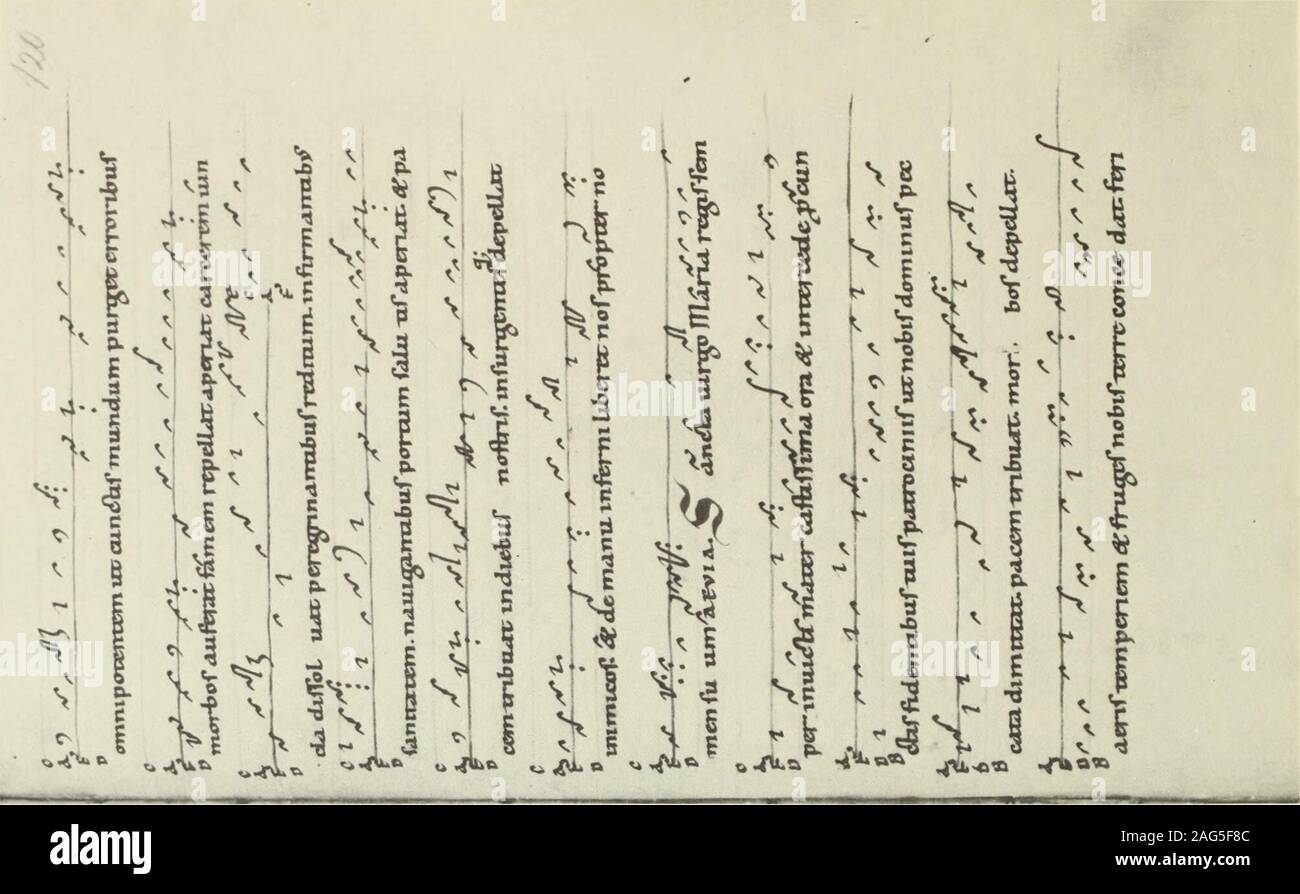 120
omnipotentem ut cunctis mundum purget erroribus
morbos auferat famem repellat aperiat carcerem uin
cla dissol uat peregrinantibus reditum. infirmantibus
sanitatem. nauigantibus portum salu tis aperiat. & pa
cem tribuat indiebus nostris. insurgentes depellat
inimicos. & de manu inferni liberet nos propter no
men su um AEVIA. Sancta uirgo Maria regis sem
per inuicti mater castissima ora & intercede p cun
ctis fidentibus tuis patrocinius ut nobis dominus pec
cata dimittat. pacem tribuat. mor. bos depellat.
aeris temperiem & fruges nobis terre conce dat. feri
alamy
Image ID: 2AG5F8C
www.alamy.com